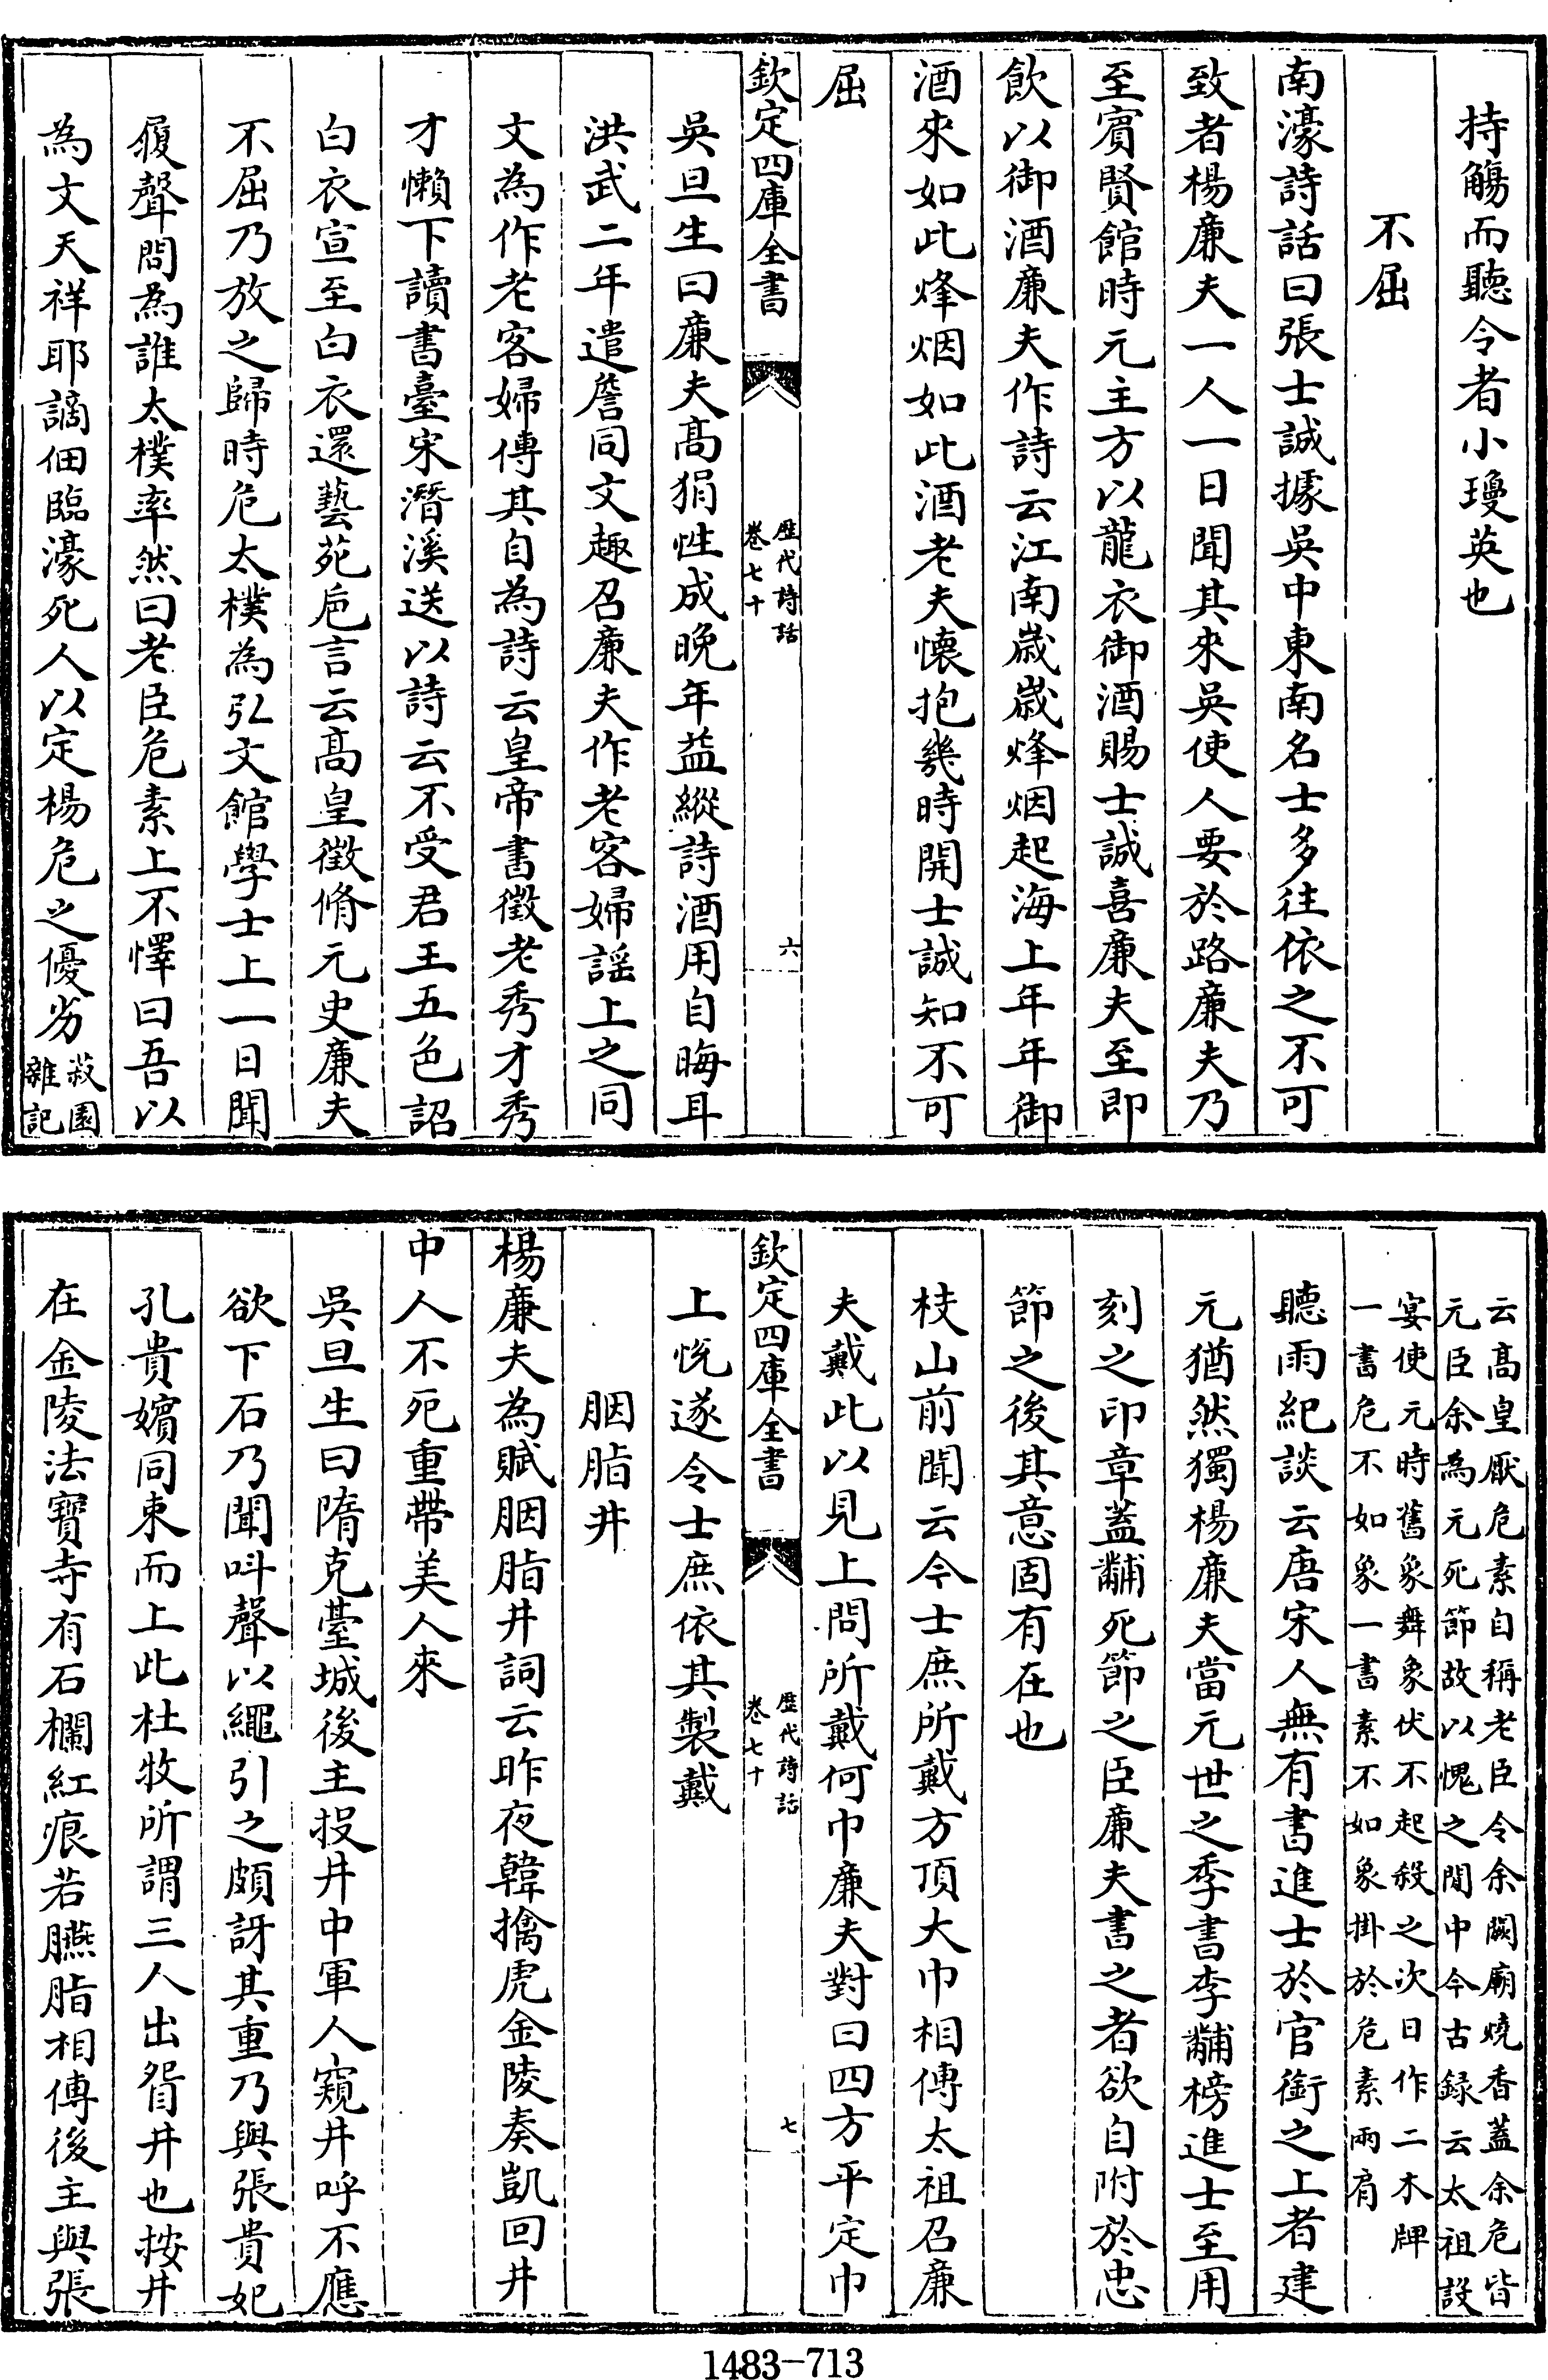 持觴而聽令者小瓊英也
不屈
南濠詩話曰張士誠據吳中東南名士多往依之不可
致者楊廉夫一人一日聞其來吳使人要於路廉夫乃
至賓賢館時元主方以龍衣御酒賜士誠喜廉夫至即
飲以御酒廉夫作詩云江南歲歲烽烟起海上年年御
酒來如此烽烟如此酒老夫懷抱幾時開士誠知不可
屈
欽定四庫全書
歷代詩話
卷七十
六
吳旦生曰廉夫髙狷性成晚年益縱詩酒用自晦耳
洪武二年遣詹同文趣召廉夫作老客婦謡上之同
文為作老客婦傳其自為詩云皇帝書徵老秀才秀
才懶下讀書臺宋潛溪送以詩云不受君王五色詔
白衣宣至白衣還藝苑巵言云髙皇徵脩元史廉夫
不屈乃放之歸時危太樸為弘文館學士上一日聞
履聲問為誰太樸率然曰老臣危素上不懌曰吾以
為文天祥耶謫佃臨濠死人以定楊危之優劣
菽園
雜記
云髙皇厭危素自稱老臣令余闕廟燒香蓋余危皆
元臣余為元死節故以愧之閒中今古録云太祖設
宴使元時舊象舞象伏不起殺之次日作二木牌
一書危不如象一書素不如象掛於危素兩肩
聽雨紀談云唐宋人無有書進士於官銜之上者建
元猶然獨楊廉夫當元世之季書李黼榜進士至用
刻之印章蓋黼死節之臣廉夫書之者欲自附於忠
節之後其意固有在也
枝山前聞云今士庶所戴方頂大巾相傳太祖召廉
夫戴此以見上問所戴何巾廉夫對曰四方平定巾
欽定四庫全書
歷代詩話
卷七十
七
上悅遂令士庶依其製戴
胭脂井
楊廉夫為賦胭脂井詞云昨夜韓擒虎金陵奏凱回井
中人不死重帶美人來
吳旦生曰隋克臺城後主投井中軍人窺井呼不應
欲下石乃聞呌聲以繩引之頗訝其重乃與張貴妃
孔貴嬪同束而上此杜牧所謂三人出眢井也按井
在金陵法寶寺有石欄紅痕若臙脂相傳後主與張
1483-713